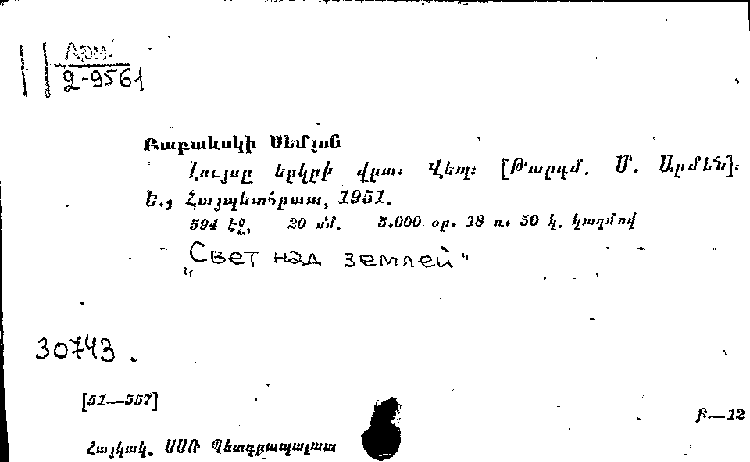 Арм.
2-9561
Բաբաևսկի Սեմյոն
Լույսը երկրի վրա։ Վեպ։ [Թարգմ. Մ. Արմեն]։
Ե., Հայպետհրատ, 1951.
594 էջ, 20 սմ. 5.000 օր. 18 ռ. 50 կ. կազմով
„Свет над землей"
30743.
[51—557]
Բ—12
Հայկակ. ՍՍՌ Պետգրապալատ